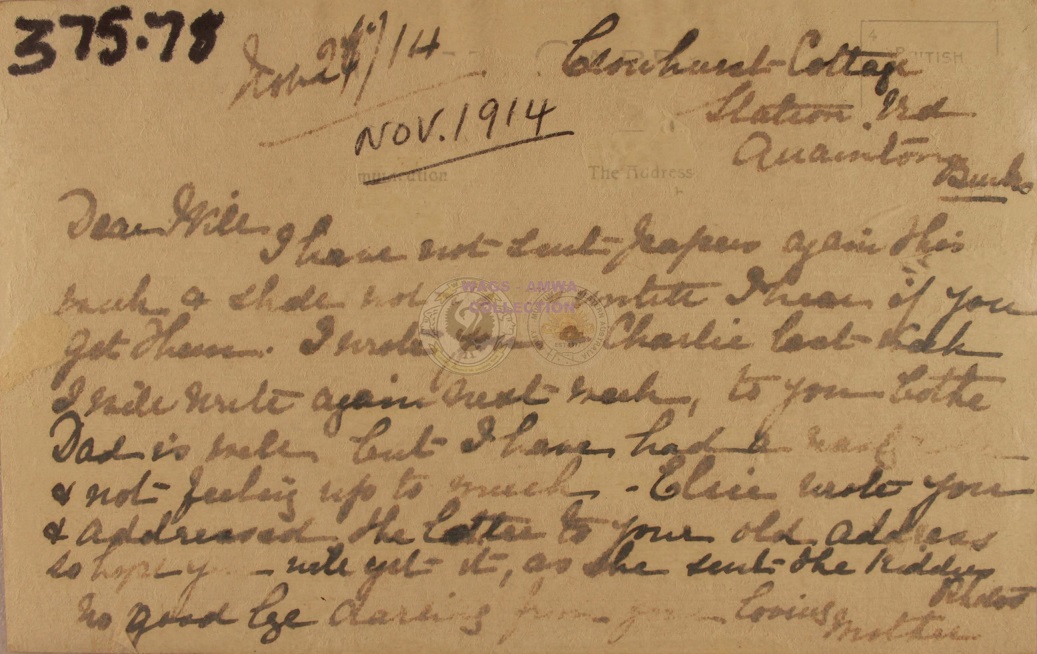 375.78
Nov 24/14
Crowhurst Cottage
BRITISH
Station Rd
NOV. 1914
Quainton
Bucks
The Address
Dear Will
I have not sent papers again this
week & shall not untill I hear if you
get them. I wrote you & Charlie last week
I will write again next week, to you bothe
Dad is well but I have had a
& not feeling up to much - Elsie wrote you
& addressed the letter to your old address
so hope you will get it, as she sent the Kiddies
Photos
So good bye darling from your loving
Mother
WAGS - AMWA
COLLECTION